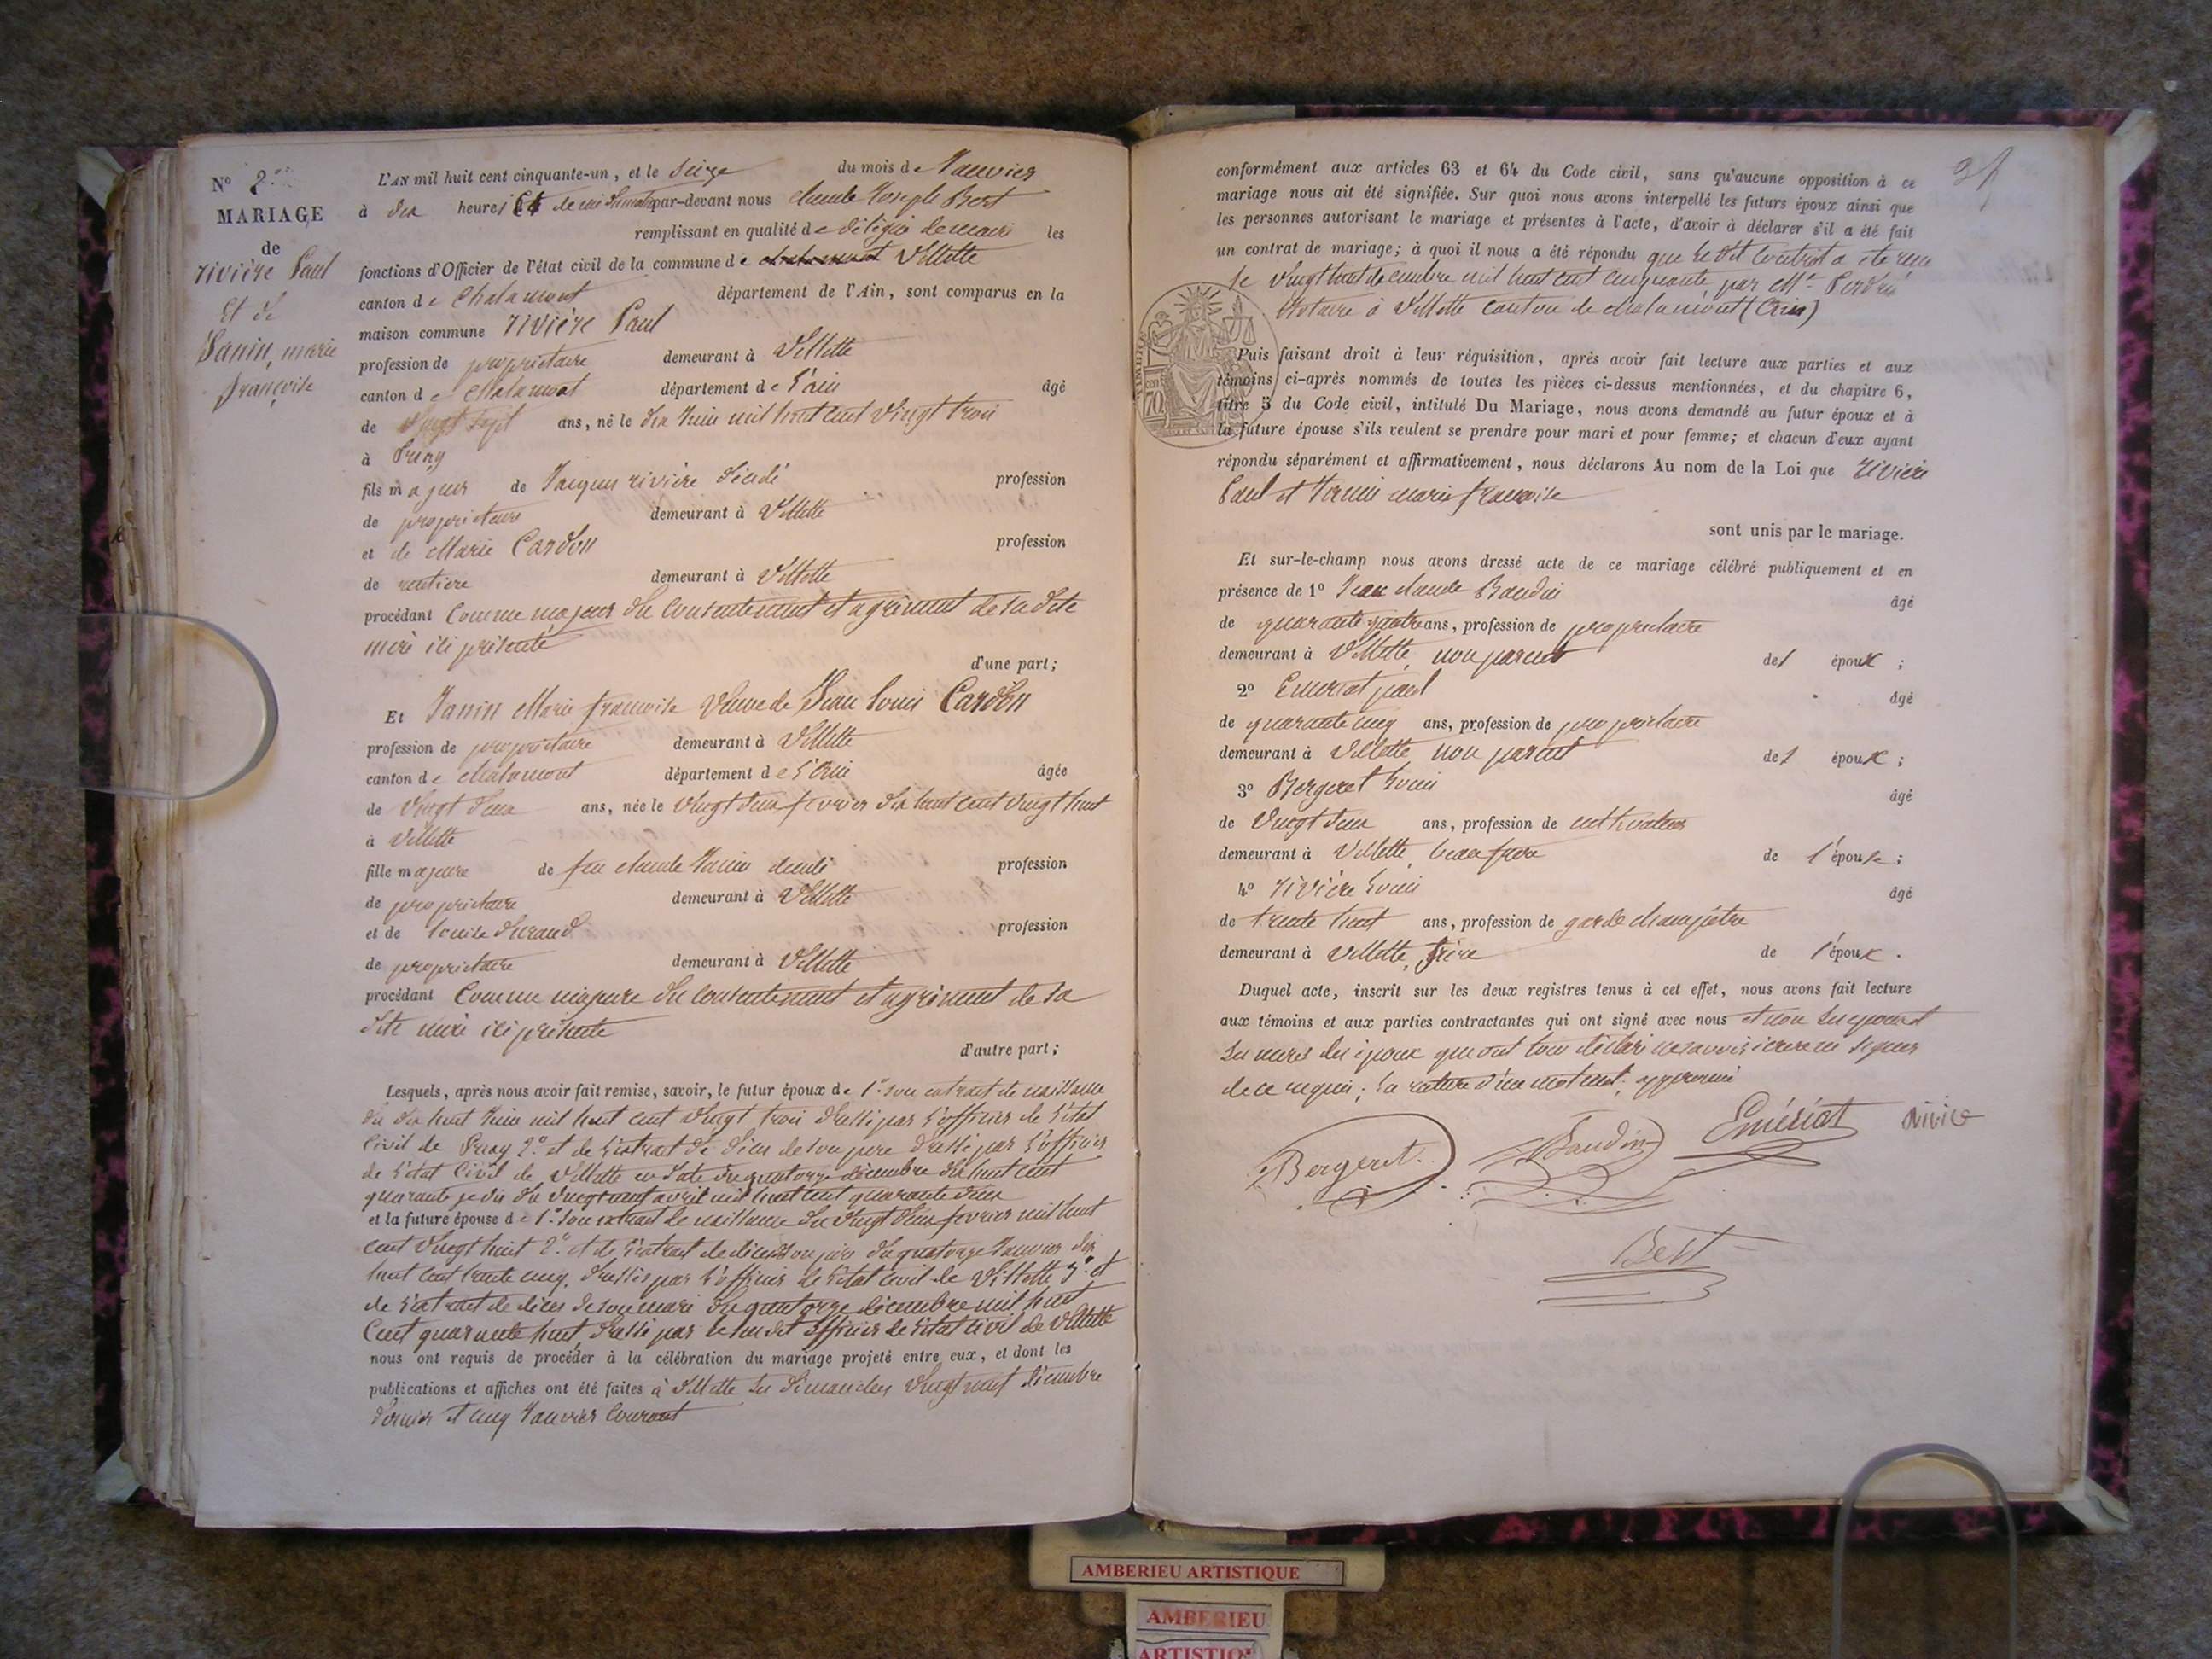 N° 2
MARIAGE
de
rivière Paul
Et de
Janin, marie
françoise
L'AN mil huit cent cinquante-un, et le seize du mois de Janvier
à dix heures Et demi du matin par-devant nous claude Joseph Bert
remplissant en qualité de délégué de maire les
fonctions d'Officier de l'état civil de la commune de chalamont Villette
canton de Chalamont département de l'Ain, sont comparus en la
maison commune rivière Paul
profession de propriétaire demeurant à Villette
canton de chalamont département de l'ain âgé
de vingt sept ans, né le dix huit mil huit cent vingt trois
à Priay
fils majeur de Jacques rivière décédé profession
de propriétaire demeurant à Villette
et de Marie Cardon profession
de rentière demeurant à Villette
procédant Comme majeur du consentement et agrément de sa dite
mère ici présente
d'une part;
Et Janin Marie françoise Veuve de Jean Louis Cardon
profession de propriétaire demeurant à Villette
canton de chalamont département de l'Ain âgée
de vingt deux ans, née le vingt deux fevrier dix huit cent vingt huit
à Villette
fille majeure de feu claude Janin décédé profession
de propriétaire demeurant à Villette
et de Louise Durand profession
de propriétaire demeurant à Villette
procédant Comme majeure du consentement et agrément de sa
dite mère ici présente
d'autre part;
Lesquels, après nous avoir fait remise, savoir, le futur époux de 1° son extrait de naissance
du dix huit Juin mil huit cent vingt trois dressé par l'officier de l'état
Civil de Priay 2° et de l'extrait de décès de son père dressé par l'officier
de l'état Civil de Villette en date du quatorze décembre dix huit cent
quarante je dis du vingt neuf avril mil huit cent quarante deux
et la future épouse de 1° son extrait de naissance du vingt deux fevrier mil huit
cent vingt huit 2° et de l'extrait de décès son père du quatorze Janvier dix
huit cent trente cinq, dressés par l'officier de l'état civil de Villette 3° et
de l'extrait de décès de son mari du quatorze décembre mil huit
Cent quarante huit, dressé par le susdit officier de l'état civil de Villette
nous ont requis de procéder à la célébration du mariage projeté entre eux, et dont les
publications et affiches ont été faites à Villette les dimanches vingt neuf décembre
dernier et cinq Janvier Courant
conformément aux articles 63 et 64 du Code civil, sans qu'aucune opposition à ce
mariage nous ait été signifiée. Sur quoi nous avons interpellé les futurs époux ainsi que
les personnes autorisant le mariage et présentes à l'acte, d'avoir à déclarer s'il a été fait
un contrat de mariage; à quoi il nous a été répondu que le dit Contrat a été reçu
le vingt huit décembre mil huit cent cinquante par Me
Notaire à Villette Canton de chalamont (Ain)
70
Puis faisant droit à leur réquisition, après avoir fait lecture aux parties et aux
témoins ci-après nommés de toutes les pièces ci-dessus mentionnées, et du chapitre 6,
titre 5 du Code civil, intitulé Du Mariage, nous avons demandé au futur époux et à
la future épouse s'ils veulent se prendre pour mari et pour femme; et chacun d'eux ayant
répondu séparément et affirmativement, nous déclarons Au nom de la Loi que rivière
Paul et Janin marie françoise
sont unis par le mariage.
Et sur-le-champ nous avons dressé acte de ce mariage célébré publiquement et en
présence de 1° Jean claude Baudin âgé
de quarante quatre ans, profession de propriétaire
demeurant à Villette, non parent de l époux ;
2° Emeriat paul âgé
de quarante cinq ans, profession de propriétaire
demeurant à Villette non parent de l époux ;
3° Bergeret Louis âgé
de vingt deux ans, profession de cultivateur
demeurant à Villette, beau frère de l'épouse ;
4° rivière Louis âgé
de trente huit ans, profession de garde champêtre
demeurant à Villette, frère de l'époux .
Duquel acte, inscrit sur les deux registres tenus à cet effet, nous avons fait lecture
aux témoins et aux parties contractantes qui ont signé avec nous et non les époux et
les mères des époux qui ont tous déclaré ne savoir écrire ni signer
de ce requis; la rature d'un mot nul; approuvé
Bergeret Baudin Emériat rivière
Bert
AMBERIEU ARTISTIQUE
AMBERIEU
ARTISTIQUE